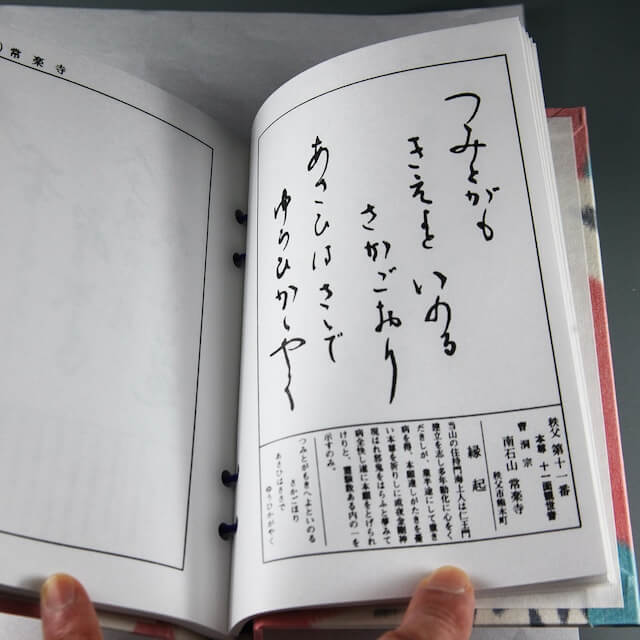 常楽寺
つみとがも
きえよといのる
さかごおり
あさひはさゝで
ゆうひかゝやく
秩父第十一番
本尊 十一面観世音
曹洞宗
南石山 常楽寺
秩父市熊木町
縁起
当山の住持門海上人は仁王門
建立を志し多年勧化に心をく
だきしが、業半途にして重き
病を得、本願達しがたきを憂
い本尊を祈りしに或夜金剛神
現はれ悪鬼をはらふと夢みて
病全快し遂に本願をとげられ
けりと、霊験数ある内の一を
示すのみ。
つみとがもきへよといのる
さかごほり
あさひはささで
ゆうひかがやく